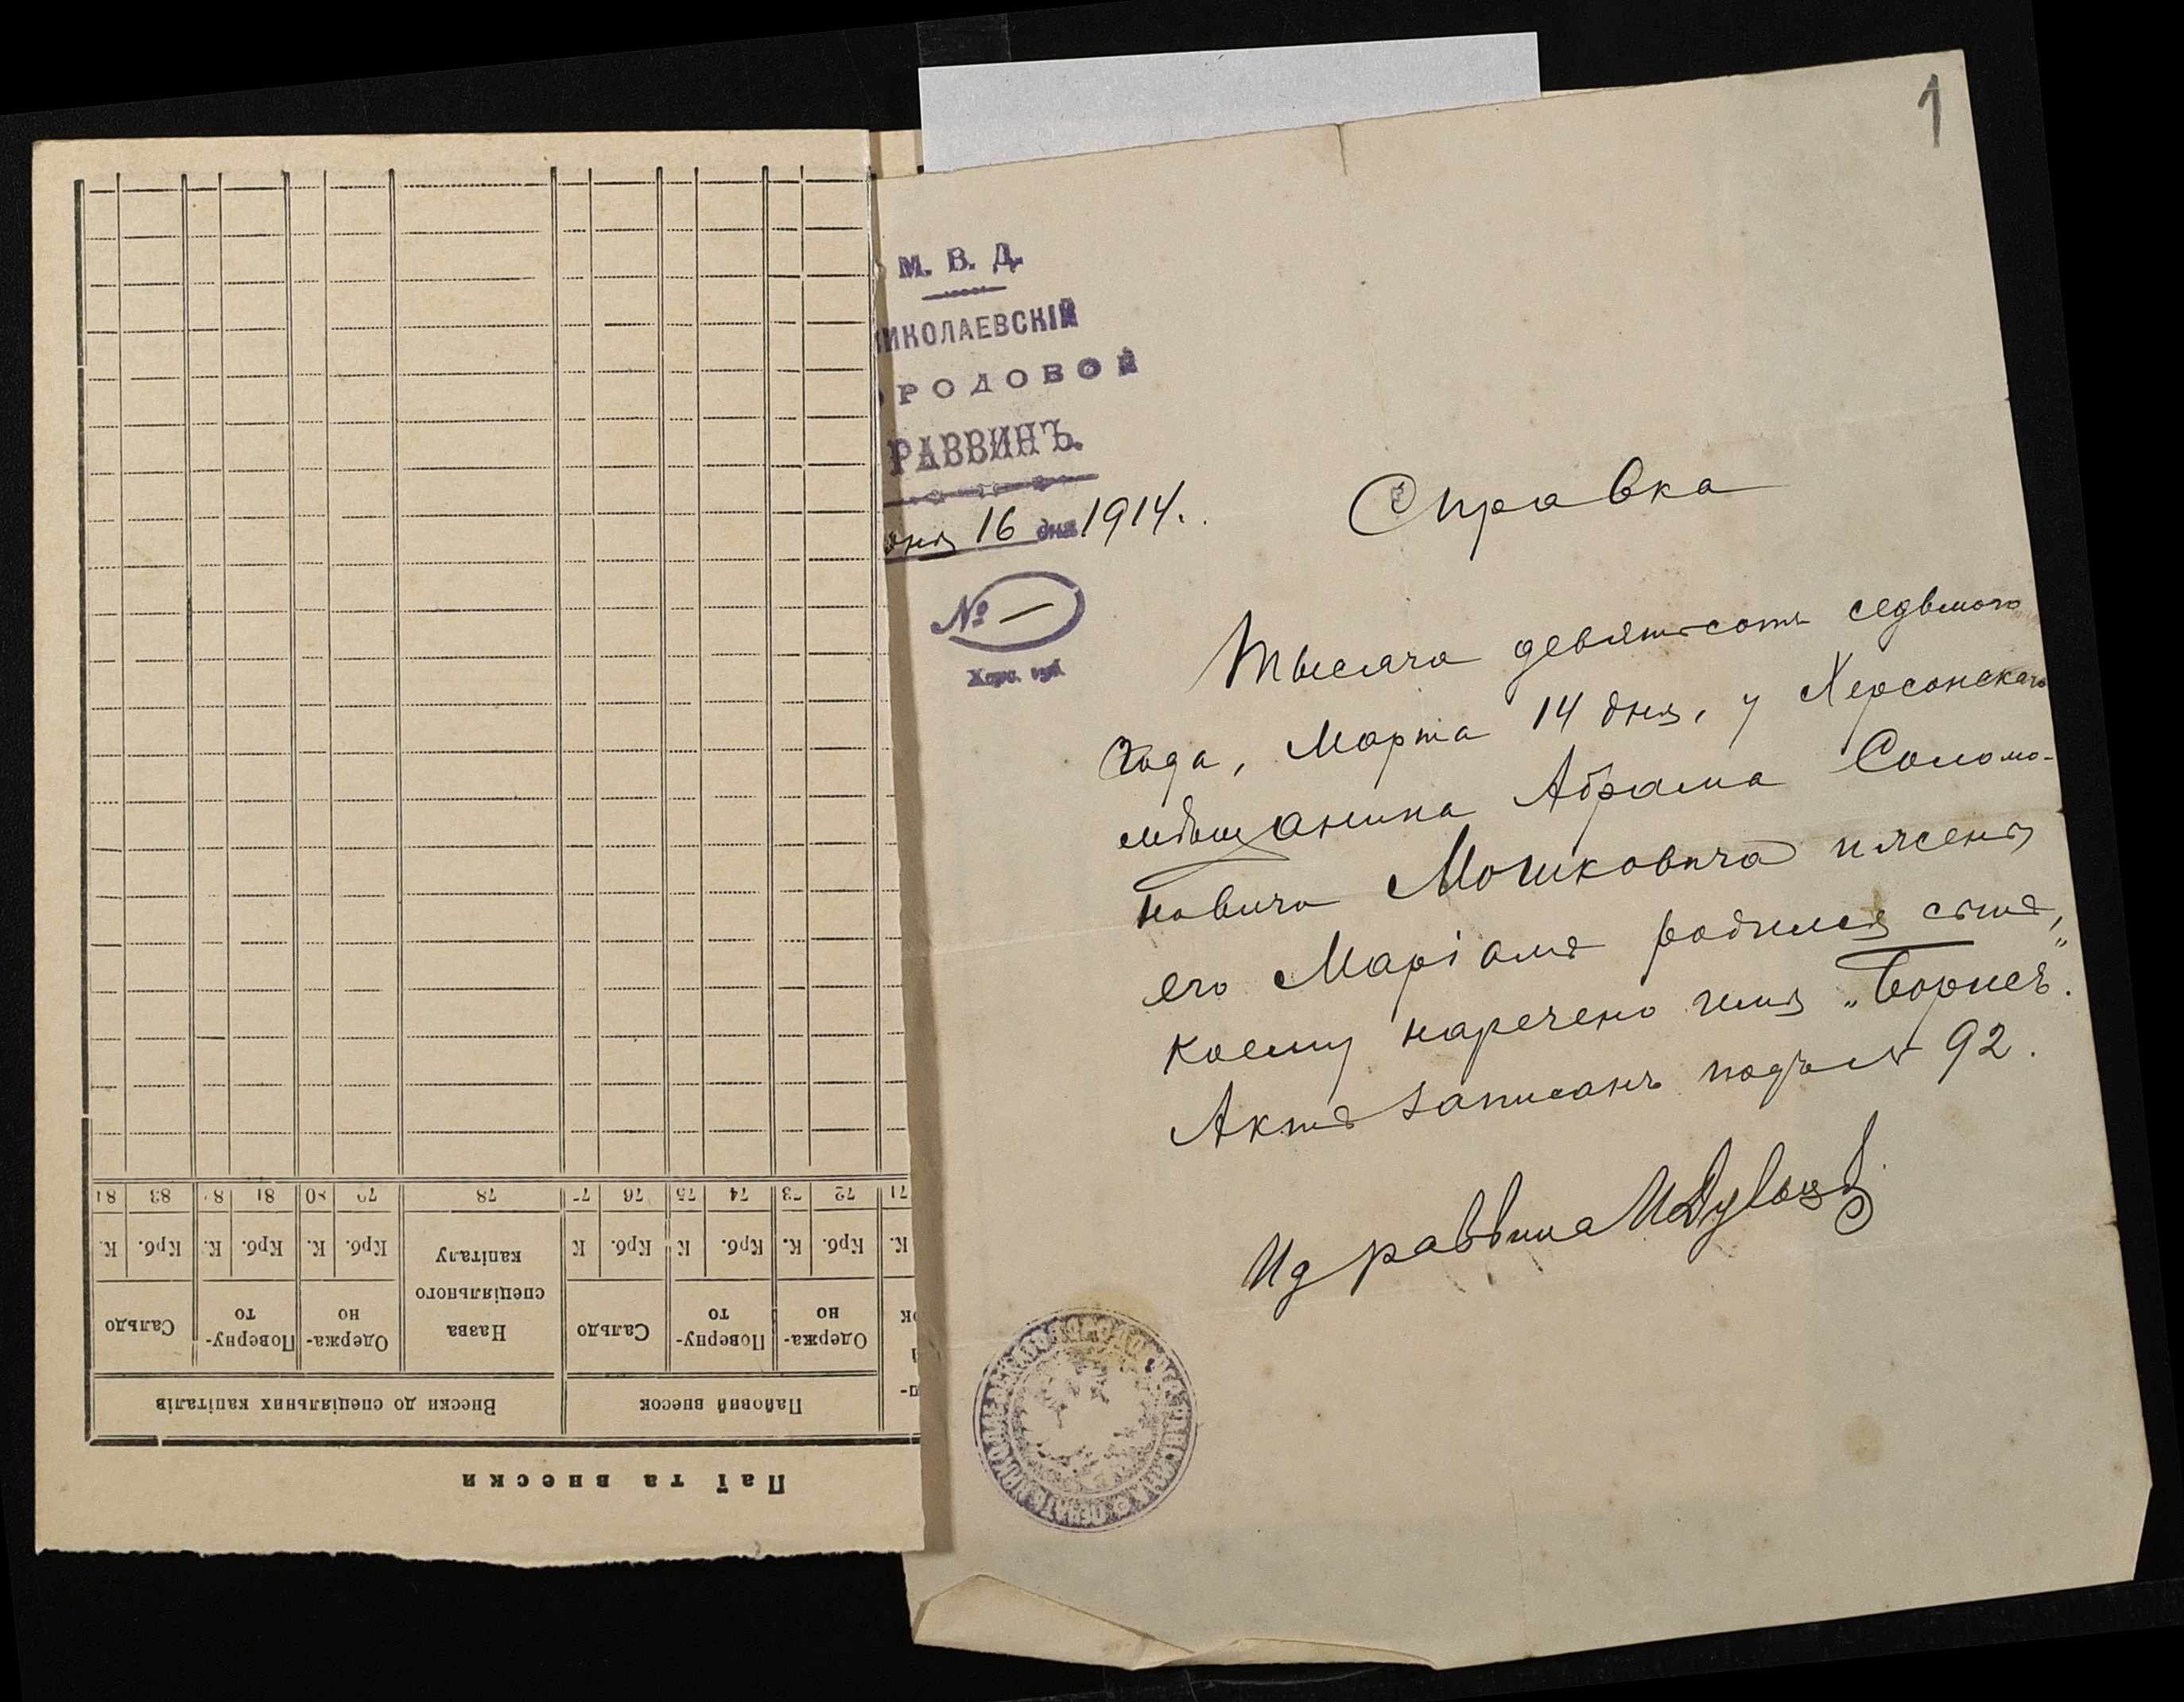 1
М. В. Д.
ИКОЛАЕВСКІЙ
РОДОВОЙ
РАВВИНЪ.
16 дня 1914.
№ —
Херс. губ.
Справка
Тысяча девятьсотъ седьмого
года, Марта 14 дня, у Херсонскаго
мѣщанина Абрама Соломо-
новича Мошковича и жены
его Маріамъ родился сынъ,
коему наречено имя „Борисъ“.
Актъ записанъ подъ № 92.
И д раввина
Паї та внески
Пайовий внесок
Внески до спеціяльних капіталів
Одержа-
но
Поверну-
то
Сальдо
Назва
спеціяльного
капіталу
Одержа-
но
Поверну-
то
Сальдо
К. Крб. К. Крб. К Крб. К Крб. К. Крб. К. Крб. К.
71 72 74 75 76 78 81 83